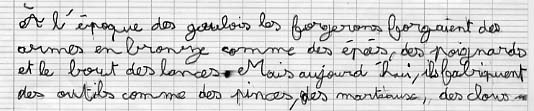 À l'époque des gaulois les forgerons forgaient des
armes en bronze comme des épées, des poignards
et le bout des lances. Mais aujourd'hui, ils fabriquent
des outils comme des pinces, des marteaux, des clous